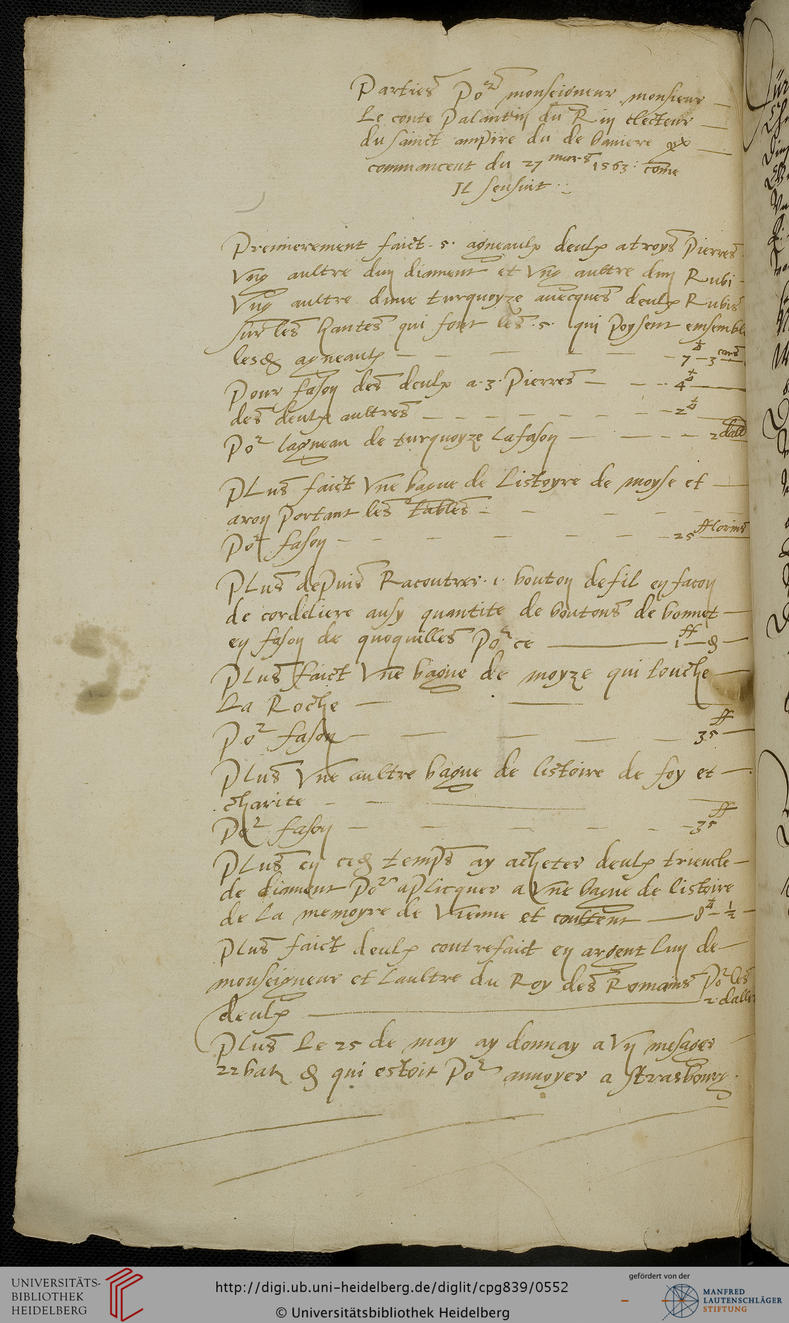 Parties Por monseigneur monsieur
Le conte Palantin du Rin electeur
du sainct ampire du de baniere
commancent du 27 mars 1563 : come
Il sensuit
Premierement faict . 5 . agneaulx deulx a troys Pierres
Vng aultre dun diament et Vng aultre dun Rubi
Vng aultre dune turquoyze auecques deulx Rubis
sur les hantes qui font les . 5 . qui poysent emsemble
agneaulx 7 3
Pour fason des deulx a . 3 . Pierres 4
des deulx aultres 2
Por lagneau de turquoyze la fason 2 dall
PLus faict Vne bague de Listoyre de moyse et
aron portant les tables
Por fason 25 fflorins
PLus depuis Racoutrer . 1 . bouton de fil en facon
de cordeliere ausy quantite de boutons de bonnet
en fason de quoquilles Por ce 1 ff
PLus faict Vne bague de moyze qui touche
La Roche
Por fason 35 ff
PLus Vne aultre bague de listoire de foy et
charite
Por fason 35 ff
PLus en temps ay acheter deulx triencle
de diament Por aplicquer a Vne bague de listoire
de La memoyre de Vienne et 8 1/2
PLus faict deulx contrefaict en argent Lun de
monseigneur et Laultre du Roy des Romains Por les
deulx 2 daller
PLus Le 25 de may ay donnay a Vn mesager
22 batz qui estoit Por annoyer a strasbourg
UNIVERSITÄTS-
BIBLIOTHEK
HEIDELBERG
http://digi.ub.uni-heidelberg.de/diglit/cpg839/0552
© Universitätsbibliothek Heidelberg
gefördert von der
MANFRED
LAUTENSCHLÄGER
STIFTUNG